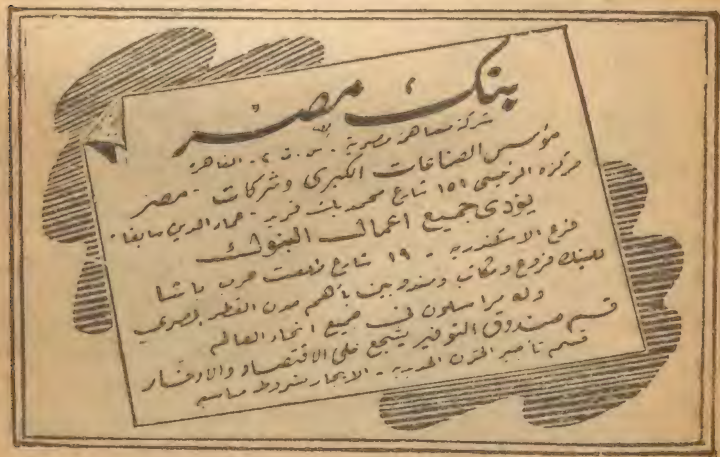 بنك مصر
شركة مساهمة مصرية - س . ت ٢ - القاهرة
مؤسس الصناعات الكبرى وشركات - مصر
مركزه الرئيسى ١٥١ شارع محمد بك فريد - عماد الدين سابقا -
يؤدى جميع اعمال البنوك
فرع الاسكندرية - ١٩ شارع طلعت حرب باشا
للبنك فروع ومكاتب ومندوبين بأهم مدن القطر المصرى
وله مراسلون فى جميع انحاء العالم
قسم صندوق التوفير يشجع على الاقتصاد والادخار
قسم تأجير الخزن الحديدية - الايجار بشروط مناسبة